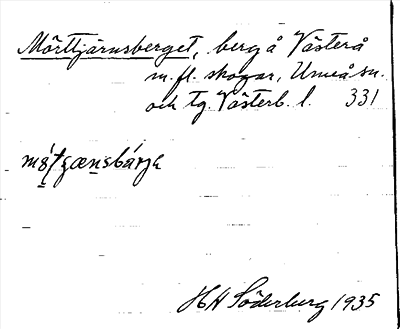 Mörttjärnsberget, berg å Västerå
m. fl. skogar, Umeå sn.
och tg. Västerb. l. 331
HH Söderberg 1935